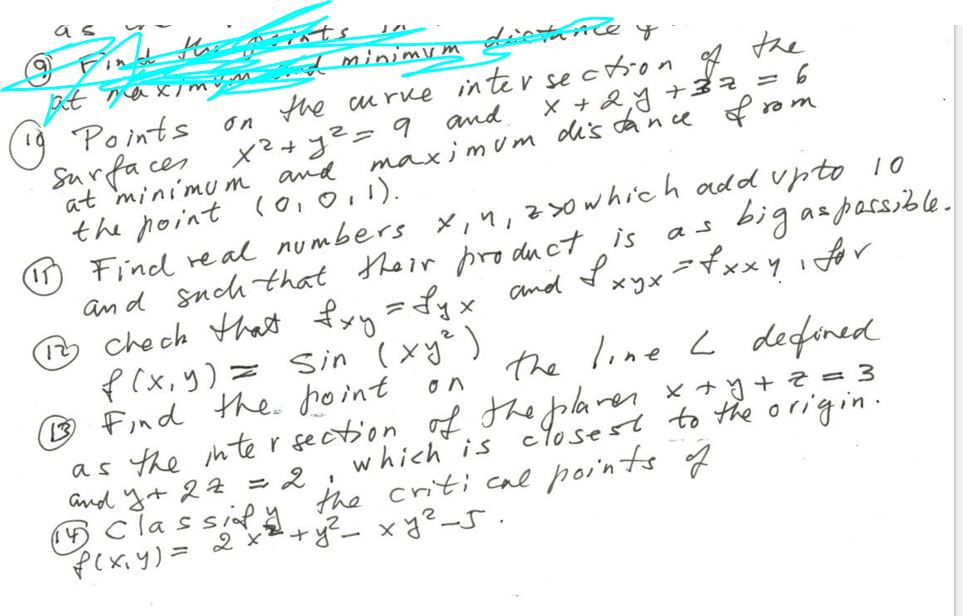 as
⑨ Find the points in
at maximum and minimum distance of
⑩ Points on the curve intersection of the
surfaces x² + y² = 9 and x + 2y + 3z = 6
at minimum and maximum distance from
the point (0, 0, 1).
⑪ Find real numbers x, y, z >0 which add upto 10
and such that their product is as big as possible.
⑫ check that fxy = fyx and fxyx = fxxy, for
f(x,y) = sin (xy²)
⑬ Find the point on the line L defined
as the intersection of the planes x + y + z = 3
and y + 2z = 2, which is closest to the origin.
⑭ Classify the critical points of
f(x,y) = 2x² + y² - xy² - 5.